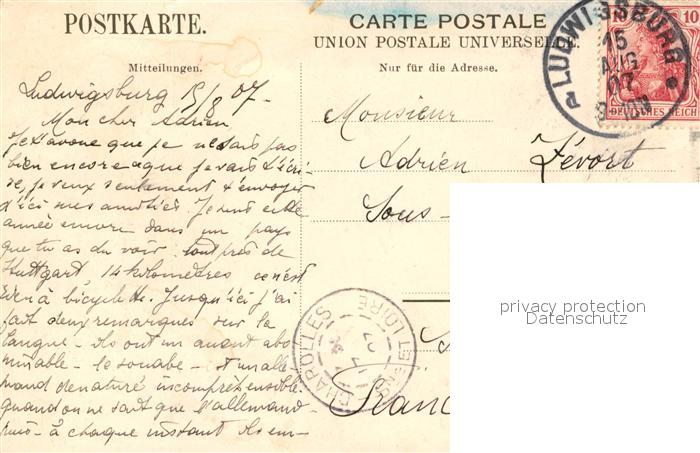 POSTKARTE.
CARTE POSTALE
UNION POSTALE UNIVERSELLE.
Mitteilungen.
Nur für die Adresse.
LUDWIGSBURG
15
AUG
07
10 10
DEUTSCHES REICH
Ludwigsburg 15/8 07
Mon cher Adrien
Je t'avoue que je ne sais pas
bien encore ce que je vais t'écri-
re, je veux seulement t'envoyer
d'ici mes amitiés. Je suis cette
année encore dans un pays
que tu as du voir tout près de
Stuttgart, 14 kilomètres ce n'est
rien à bicyclette. Jusqu'ici j'ai
fait deux remarques sur la
langue - ils ont un accent abo
minable - le souabe - et un alle-
mand denaturé incompréhensible
quand on ne sait que l'allemand
à chaque instant ils em-
Monsieur
Adrien Zévort
Sous-
CHAROLLES
ET LOIRE
privacy protection
Datenschutz